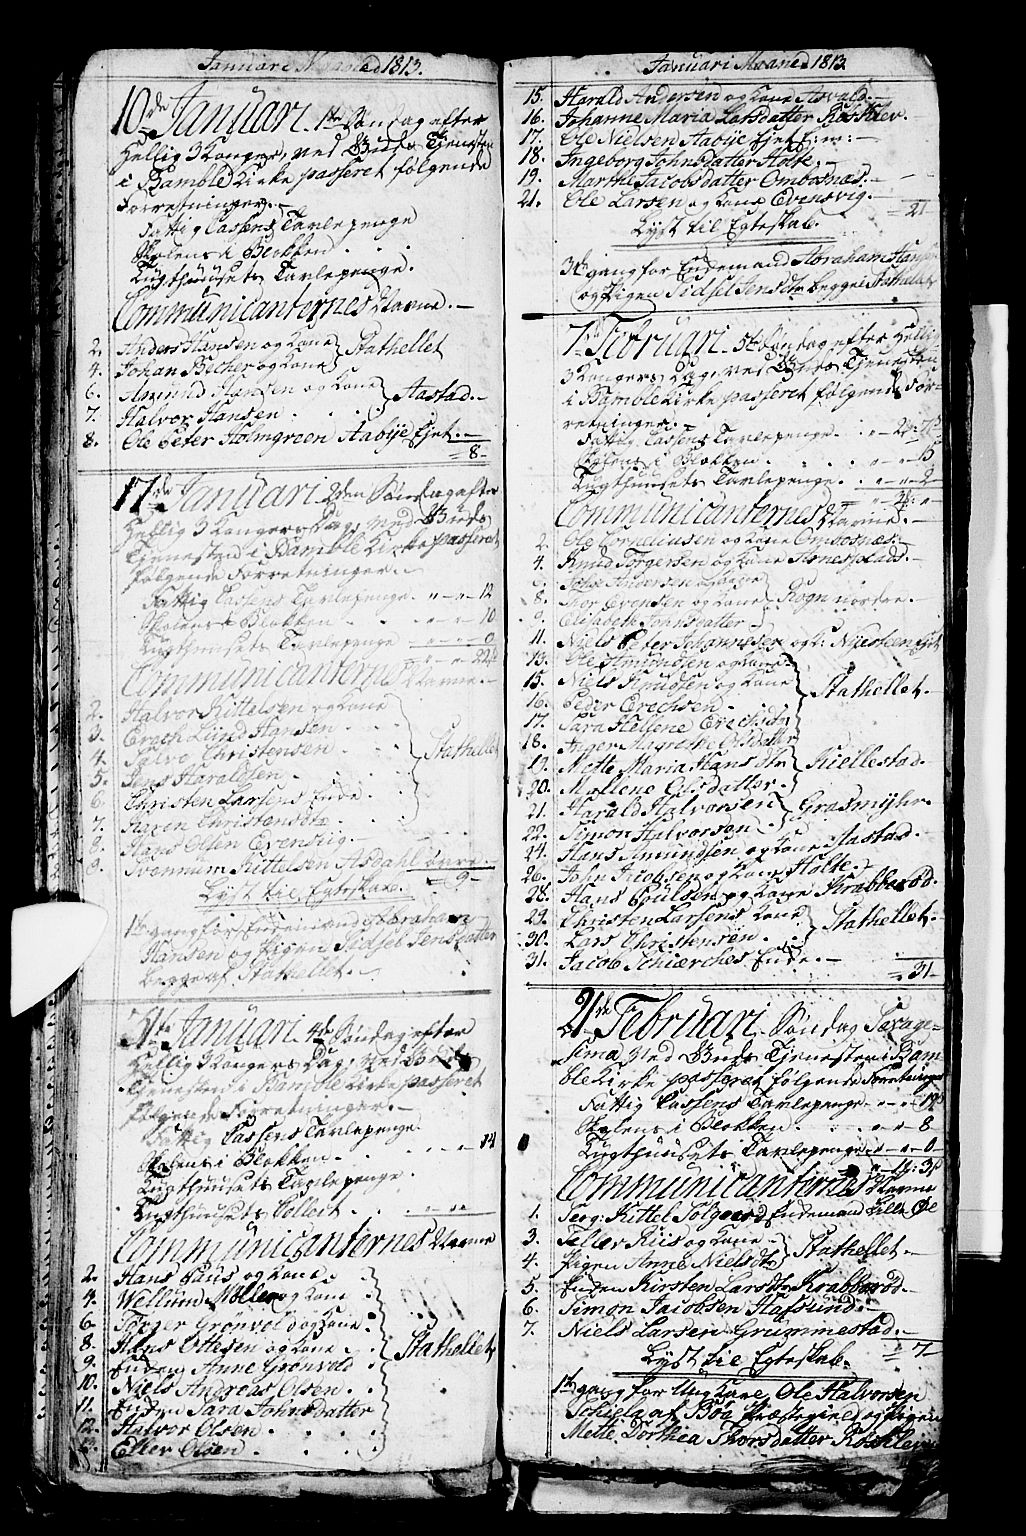 Januari Maaned 1813.
10de Januari. 1te Søndag efter
Hellig 3 Konger, ved Guds Tjenesten
i Bamble Kirke passeret følgende
Forretninger.
Fattig Cassens Tavlepenge
Skolens i Blokken
Tugthuusets Tavlepenge.
Communicanternes Navne.
2. Anders Hansen og Kone
4. Johan Becher og Kone } Stathellet
6. Amund Hansen og Kone
7. Halvor Hansen } Aastad.
8. Ole Peter Holmgreen Aabije Ejet.
= 8 -
17de Januari 2den Søndag efter
Hellig 3 Kongers Dag, ved Guds
Tjenesten i Bamble Kirke passeret
følgende Forretninger.
Fattig Cassens Tavlepenge. " - " - 12
Skolens i Blokken " - " - 10
Tugthuusets Tavlepenge " - " - 0
" - " - 22
Communicanternes Navne.
2. Halvor Kittelsen og Kone
3. Erach Lund Hansen
4. Salve Christensen
5. Jens Haraldsen } Stathellet
6. Christen Larsens Enke
7. Karen Christensdtr
8. Hans Olsen Evensvig
9. Kittelsen Asdahl øvre.
= 9 -
Lyst til Egteskab.
1te gang for Enkemand Abraham
Hansen og Pigen Sidsel Jensdatter
begge af Stathellet.
31te Januari 4de Søndag efter
Hellig 3 Kongers Dag, ved Guds
Tjenesten i Bamble Kirke passeret
følgende Forretninger.
Fattig Cassens Tavlepenge
Skolens i Blokken. " - " - 14
Tugthuusets Tavlepenge
Tugthuusets Collect
Communicanternes Navne
2. Hans Paus og Kone
4. Wellum Møller og Kone
6. Torger Grønvold og Kone
8. Hans Ottesen og Kone } Stathellet
9. Enken Anne Grønvold
10. Niels Andreas Olsen
11. Enken Sara Johnsdatter
12. Halvor Olsen
Eller Olsen
Januari Maaned 1813.
15. Harald Andersen og Kone Asvald.
16. Johanne Maria Larsdatter
17. Ole Nielsen Aabije Ejet
18. Ingeborg Johnsdatter Holte.
19. Marthe Jacobsdatter Ombosnæs.
21. Ole Larsen og Kone Evensvig.
= 21
Lyst til Egteskab.
3die gang for Enkemand Abraham Hansen
og Pigen Sidsel Jensdtr begge Stathellet
7de Februari. 5te Søndag efter Hellig
3 Kongers Dag, ved Guds Tjenesten
i Bamble Kirke passeret følgende For-
retninger.
Fattig Cassens Tavlepenge.
Skolens i Blokken
Tugthuusets Tavlepenge
Communicanternes Navne.
2. Ole Corneliusen og Kone Ombosnæs.
4. Knud Torgersen og Kone
John Andersen og Kone
8. Thor Evensen og Kone } Rogn nordre.
9. Elisabeth Johnsdatter
11. Niels Peter Johannesen og K:
13. Ole Amundsen og Kone
15. Niels Knudsen og Kone
16. Peder Erechsen } Stathellet.
17. Sara Hellene Erechsdtr
18. Inger Margrethe Olsdatter
19. Mette Maria Hansdtr } Kiellestad.
20. Mallene Olsdatter
21. Harald Halvorsen } Grasmyhr.
22. Simon Halvorsen
24. Hans Amundsen og Kone Aastad.
26. John Jacobsen og Kone Holte.
28. Hans Poulsen og Kone Krabberød.
29. Christen Larsens Kone
30. Lars Christensen } Stathellet.
31. Jacob Schiærches Enke.
= 31 -
21de Februari. Søndag Sexage-
sima ved Guds Tjenesten i Bam
ble Kirke passeret følgende Forretninger
Fattig Cassens Tavlepenge
Skolens i Blokken " - " - 8
Tugthuusets Tavlepenge " - " - 0
Communicanternes Navne
1. Serg: Kittel Solgaard Enkemand
3. Teller Riis og Kone
4. Pigen Anne Nielsdtr } Stathellet.
5. Enken Kirsten Larsdtr Krabberød.
6. Simon Jacobsen Hafsund.
7. Niels Larsen Grummestad.
= 7 -
Lyst til Egteskab.
1te gang for Ung Karl Ole Halvorsen
af Bøe Præstegield og Pigen
Mette Dorthea Thorsdatter